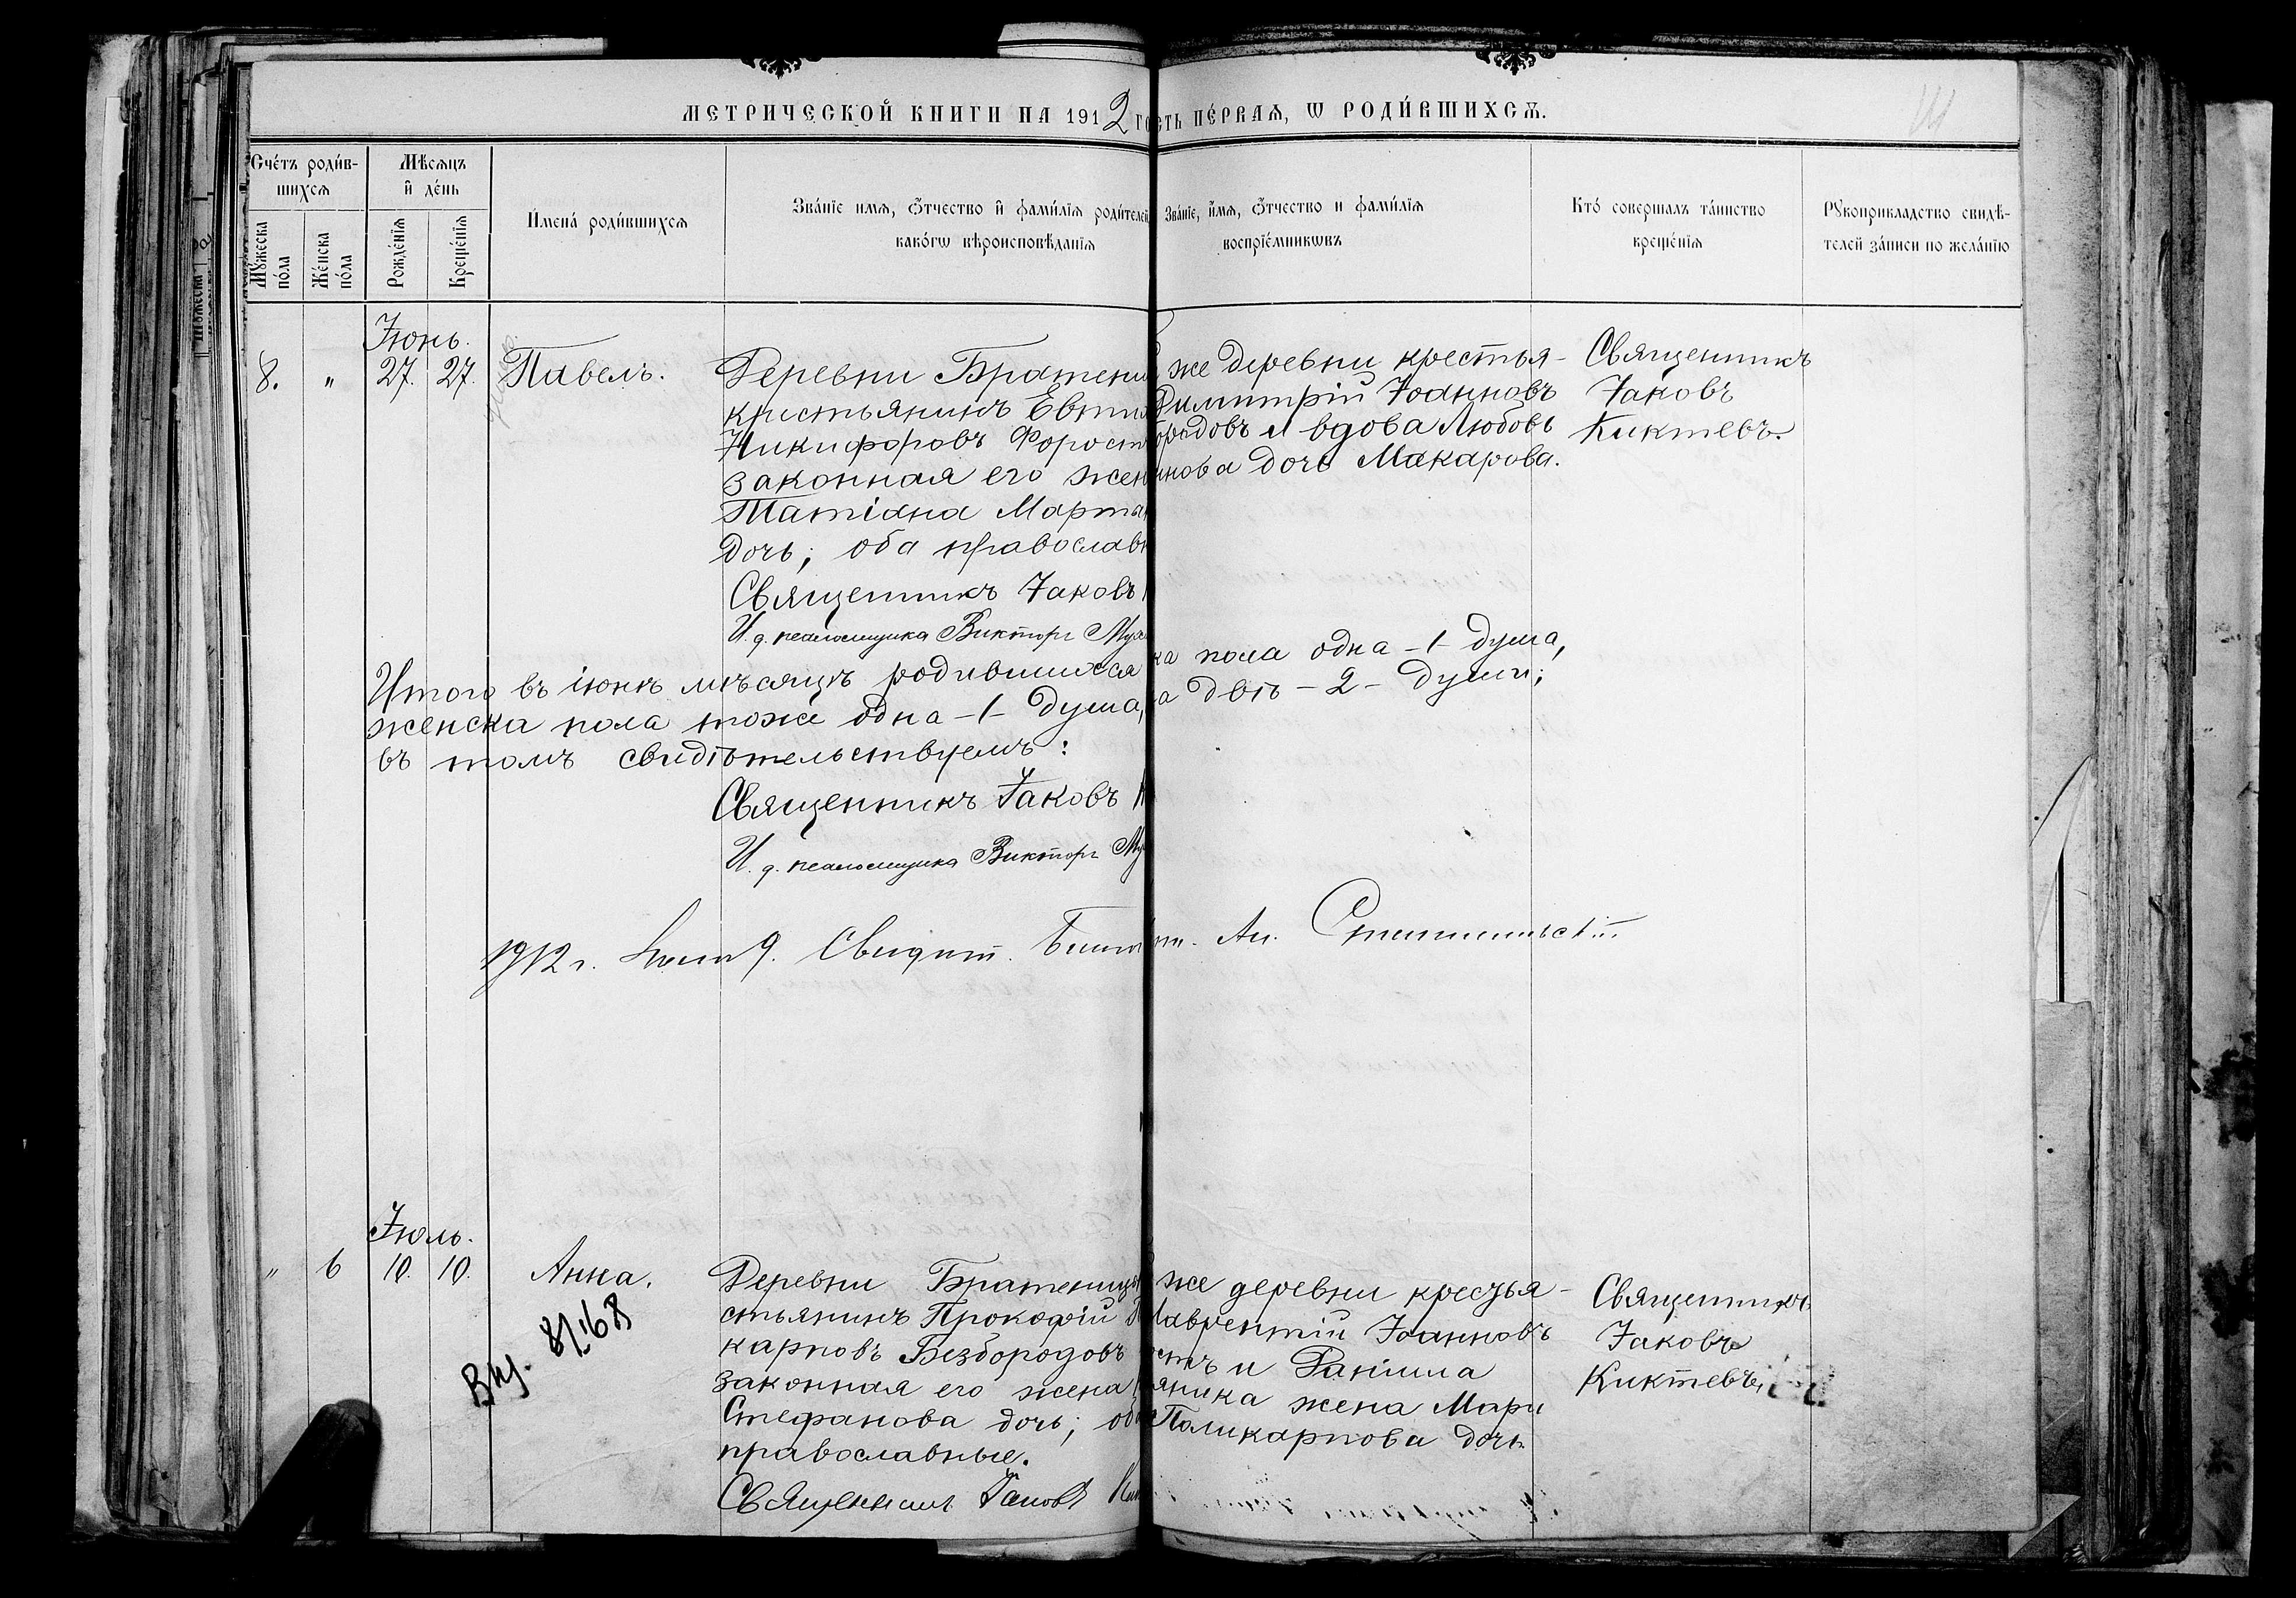 МЕТРИЧЕСКОЙ КНИГИ НА 1912 Г
СТЬ ПЕ́РВАѦ, Ѡ РОДИ́ВШИХСѦ.
Сче́тъ роди́в-
шихсѧ
Мꙋ́жеска
по́ла
Же́нска
по́ла
Мѣ́сѧцъ
и҆ де́нь
Рожде́нїѧ
Креще́нїѧ
И҆мена́ роди́вшихсѧ
Зва́нїе имѧ, ѻ҆́тчество и҆ фами́лїѧ роди́телей
како́гѡ вѣроисповѣ́данїѧ
Зва́нїе, и҆́мѧ, ѻ҆́тчество и фами́лїѧ
воспрїе́мникѡвъ
Кто́ совершалъ та́инство
креще́нїѧ
Рꙋкоприкладство свидѣ́-
телей за́писи по жела́нїю
Іюнь.
8. " 27. 27. Павелъ.
Деревни Братени
крестьянинъ Евти
Никифоровъ Форост
законная его жен
Татіана Марты
дочь; оба православн
Священникъ Іаковъ
И. д. псаломщика Викторъ Мух
же деревни крестья-
Димитрій Іоанновъ
бородовъ и вдова Любовь
нова дочь Макарова.
Священникъ
Іаковъ
Киктевъ.
Итого въ іюнѣ мѣсяцѣ родившихся
ка пола одна -1- душа,
женска пола тоже одна -1- душа,
а двѣ -2- души;
въ томъ свидѣтельствуемъ:
Священникъ Іаковъ
И. д. псаломщика Викторъ Му
1912 г. 9. Свидѣт.
Іюль.
" 6 10. 10. Анна.
Вид. 81.68
Деревни Братеницы
стьянинъ Прокофій П
карповъ Безбородовъ
законная его жена
Стефанова дочь; оба
православные.
Священникъ Іаковъ Ки
же деревни крестья-
Лаврентій Іоанновъ
стъ и
яника жена Марѳ
Поликарпова дочь.
Священникъ
Іаковъ
Киктевъ.